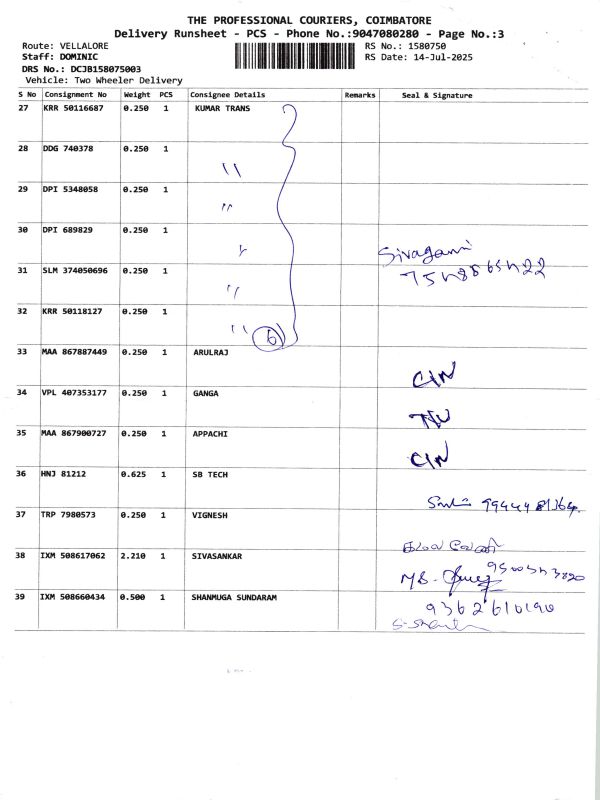 THE PROFESSIONAL COURIERS, COIMBATORE
Delivery Runsheet - PCS - Phone No.:9047080280 - Page No.:3
Route: VELLALORE RS No.: 1580750
Staff: DOMINIC RS Date: 14-Jul-2025
DRS No.: DCJB158075003
Vehicle: Two Wheeler Delivery
S No Consignment No Weight PCS Consignee Details Remarks Seal & Signature
27 KRR 50116687 0.250 1 KUMAR TRANS
28 DDG 740378 0.250 1
"
29 DPI 5348058 0.250 1
"
30 DPI 689829 0.250 1
Sivagami
31 SLM 374050696 0.250 1
"
32 KRR 50118127 0.250 1
" 6
33 MAA 867887449 0.250 1 ARULRAJ
CIN
34 VPL 407353177 0.250 1 GANGA
35 MAA 867900727 0.250 1 APPACHI
CIN
36 HNJ 81212 0.625 1 SB TECH
37 TRP 7980573 0.250 1 VIGNESH
38 IXM 508617062 2.210 1 SIVASANKAR
39 IXM 508660434 0.500 1 SHANMUGA SUNDARAM
9362610190